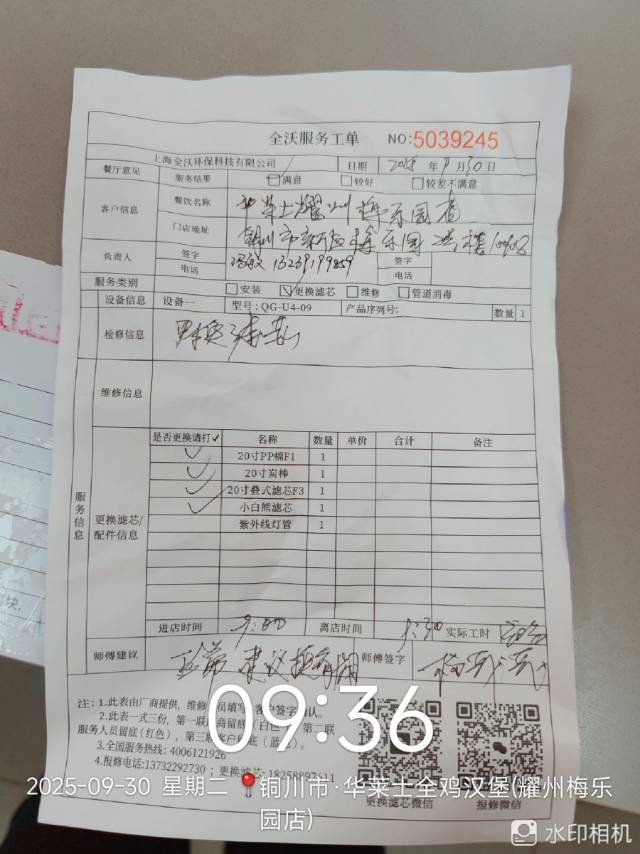 全沃服务工单 NO:5039245
上海全沃环保科技有限公司 日期 2025年9月30日
餐厅意见 服务结果 满意 较好 较差不满意
客户信息 餐饮名称 华莱士耀州梅乐园店
门店地址 铜川市新区梅乐园
负责人 签字
电话 签字
电话
服务类别 安装 更换滤芯 维修 管道消毒
设备信息 设备一 型号:QG-U4-09 产品序列号: 数量 1
检修信息 更换滤芯
维修信息
服务信息
更换滤芯/配件信息
是否更换请打✓ 名称 数量 单价 合计 备注
✓ 20寸PP棉F1 1
✓ 20寸炭棒 1
✓ 20寸叠式滤芯F3 1
✓ 小白熊滤芯 1
紫外线灯管 1
进店时间 9:00 离店时间 9:30 实际工时
师傅建议 正常 建议 师傅签字
注:1.此表由厂商提供,维修 员填写 客户签字 认。
2.此表一式三份,第一联 商留底(白色 第二联
服务人员留底(红色),第三联客户 底(蓝 )。
3.全国服务热线:4006121926
4.报修电话:13732292730 ;更换滤芯:
更换滤芯微信 报修微信
09:36
2025-09-30 星期二 铜川市·华莱士全鸡汉堡(耀州梅乐
园店)
水印相机